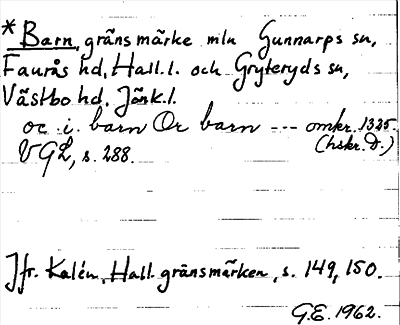 *Barn, gränsmärke mln Gunnarps sn,
Faurås hd, Hall. l. och Gryteryds sn,
Västbo hd, Jönk. l.
oc . i. barn Or barn --- omkr. 1325.
VGL, s. 288. (hskr. D.)
Jfr. Kalén, Hall. gränsmärken, s. 149, 150.
G.E. 1962.